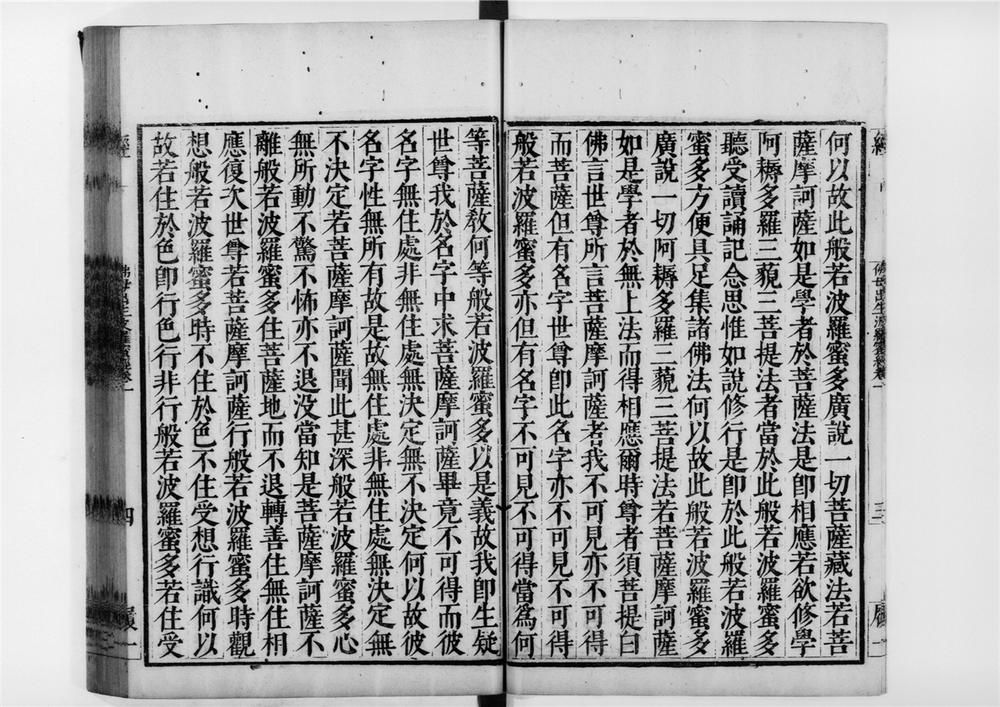 何以故此般若波羅蜜多廣說一切菩薩藏法若菩
薩摩訶薩如是學者於菩薩法是卽相應若欲修學
阿耨多羅三藐三菩提法者當於此般若波羅蜜多
聽受讀誦記念思惟如說修行是卽於此般若波羅
蜜多方便具足集諸佛法何以故此般若波羅蜜多
廣說一切阿耨多羅三藐三菩提法若菩薩摩訶薩
如是學者於無上法而得相應爾時尊者須菩提白
佛言世尊所言菩薩摩訶薩者我不可見亦不可得
而菩薩但有名字世尊卽此名字亦不可見不可得
般若波羅蜜多亦但有名字不可見不可得當爲何
等菩薩敎何等般若波羅蜜多以是義故我卽生疑
世尊我於名字中求菩薩摩訶薩畢竟不可得而彼
名字無住處非無住處無決定無不決定何以故彼
名字性無所有故是故無住處非無住處無決定無
不決定若菩薩摩訶薩聞此甚深般若波羅蜜多心
無所動不驚不怖亦不退没當知是菩薩摩訶薩不
離般若波羅蜜多住菩薩地而不退轉善住無住相
應復次世尊若菩薩摩訶薩行般若波羅蜜多時觀
想般若波羅蜜多時不住於色不住受想行識何以
故若住於色卽行色行非行般若波羅蜜多若住受
四